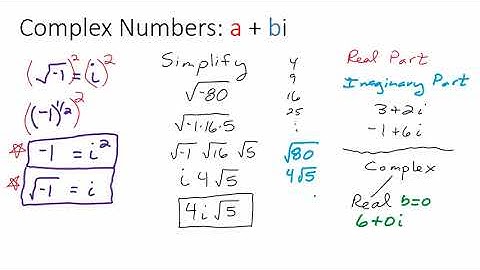 Complex Numbers: a + bi
(√-1)² = (i)²
((-1)^1/2)²
-1 = i²
√-1 = i
Simplify
√-80
√-1·16·5
√-1 √16 √5
i 4√5
4i√5
4
9
16
25
√80
4√5
Real Part
Imaginary Part
3+2i
-1+6i
Complex
Real b=0
6+0i